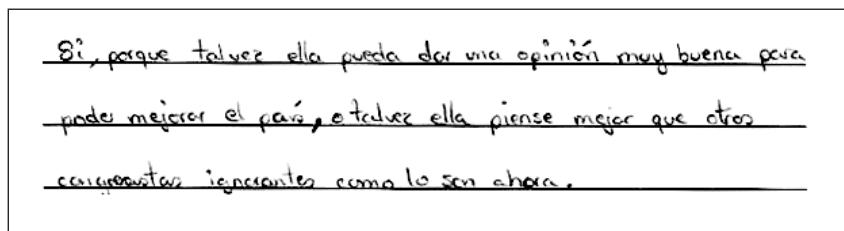 Si, porque talvez ella pueda dar una opinión muy buena para
poder mejorar el país, o talvez ella piense mejor que otros
congresistas ignorantes como lo son ahora.